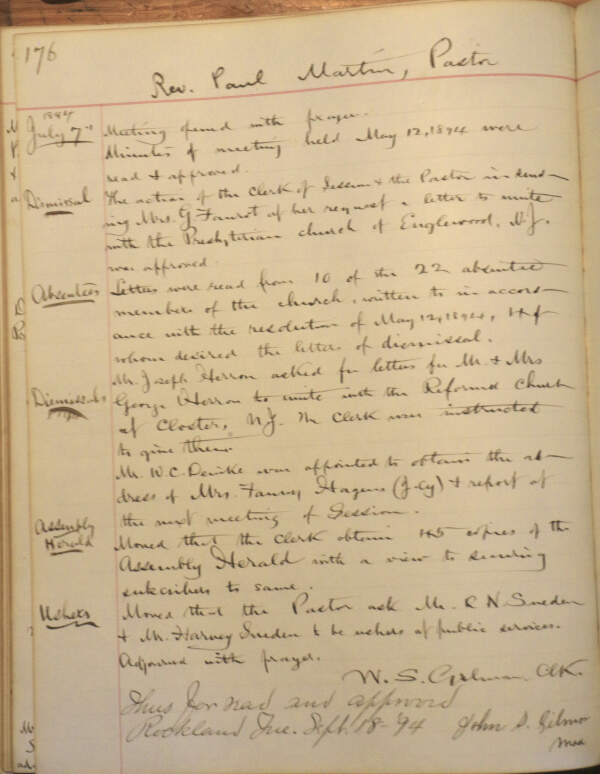 176
Rev. Paul Martin, Pastor
1894
July 7th Meeting opened with prayer.
Minutes of meeting held May 12, 1894 were
read & approved.
Dismissal The action of the Clerk of Session & the Pastor in send-
ing Mrs. G. Faurot at her request a letter to unite
with the Presbyterian church of Englewood, N.J.
was approved.
Absentees Letters were read from 10 of the 22 absentee
members of the church, written to in accord-
ance with the resolution of May 12, 1894, 4 of
whom desired the letters of dismissal.
Mr. Joseph Herron asked for letters for Mr. & Mrs
Dismissals George Herron to unite with the Reformed Church
of Closter, N.J. The Clerk was instructed
to give them.
Mr. W.C. was appointed to obtain the ad-
dress of Mrs. Fanny & report at
the next meeting of Session.
Assembly
Herald Moved that the Clerk obtain copies of the
Assembly Herald with a view to securing
subcribers to same.
Ushers Moved that the Pastor ask Mr. R N. Sneden
& Mr. Harvey Sneden to be ushers at public services.
Adjourned with prayer.
W. S. Gilman, Clk.
Thus far read and approved
Rockland Sept. 18-'94 John S. Gilmor